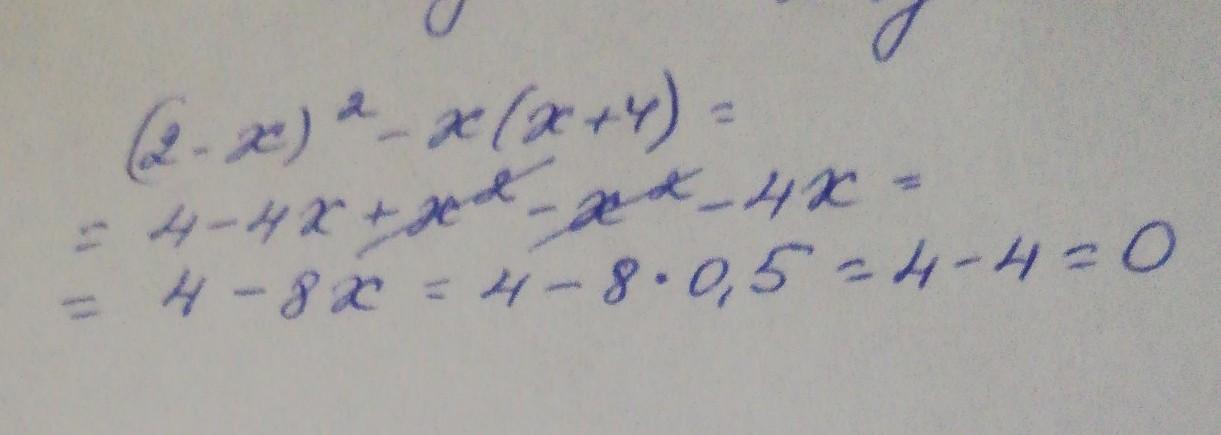 (2-x)² - x(x+4) =
= 4-4x+x²-x²-4x =
= 4-8x = 4-8·0,5 = 4-4=0